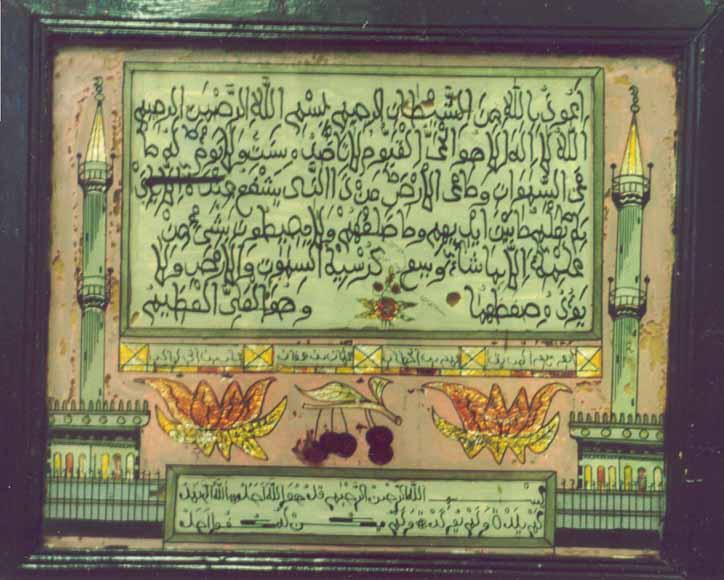 أعوذ بالله من الشيطان الرجيم بسم الله الرحمن الرحيم
الله لا اله الا هو الحى القيوم لا تأخذه سنة ولا نوم له ما
فى السموات وما فى الأرض من ذا الذى يشفع عنده الا
يعلم ما بين ايديهم وما خلفهم ولا يحيطون بشئ من
علمه الا بما شاء وسع كرسيه السموات والارض ولا
يؤده حفظهما وهو العلى العظيم
عمر بن الخطاب عثمان بن عفان
بسم الله الرحمن الرحيم قل هو الله احد الله الصمد
لم يلد ولم يولد ولم يكن له كفوا احد